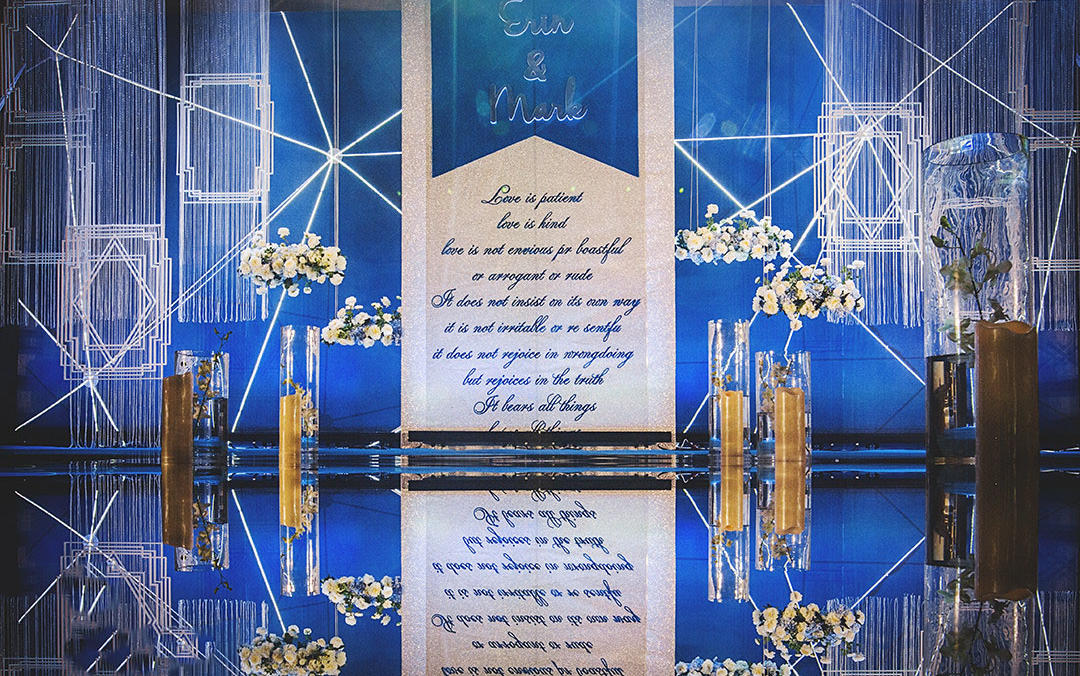 Erin
&
Mark
Love is patient
love is kind
love is not envious pr boastful
or arrogant or rude
It does not insist on its own way
it is not irritable or re sentfu
it does not rejoice in wrongdoing
but rejoices in the truth
It bears all things